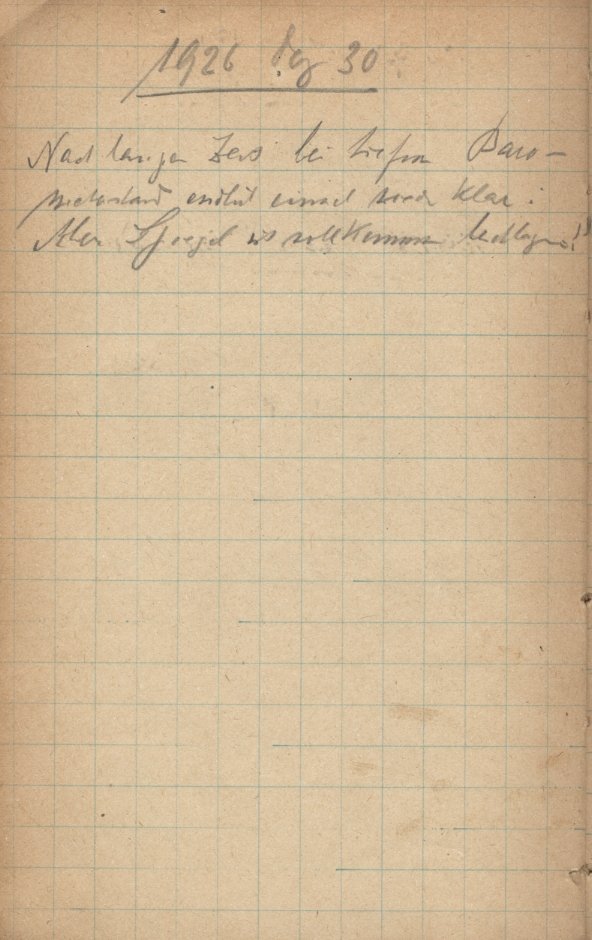 1926 Dez 30
Nach langer Zeit bei tiefem Baro-
meterstand endlich einmal wieder klar.
Aber Spiegel ist vollkommen beschlagen!!